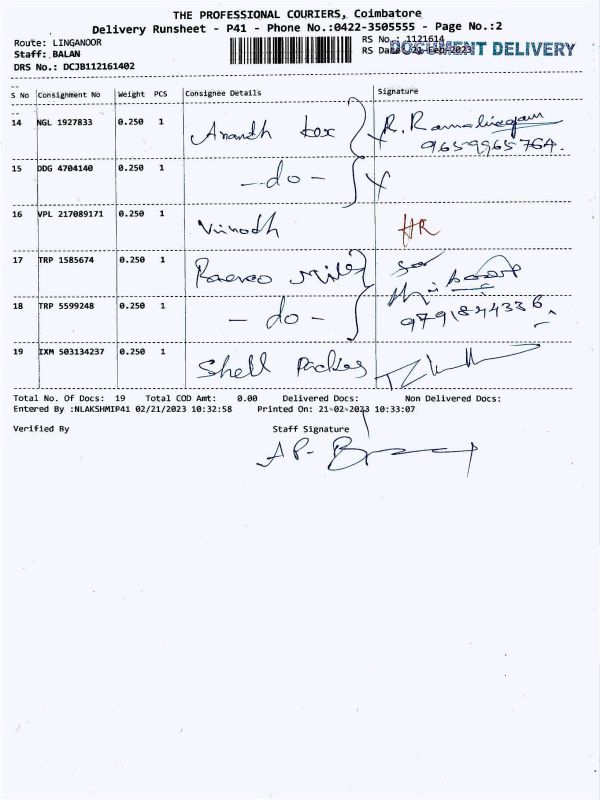 THE PROFESSIONAL COURIERS, Coimbatore
Delivery Runsheet - P41 - Phone No.:0422-3505555 - Page No.:2
Route: LINGANOOR
RS No.: 1121614
Staff: BALAN
RS Date: 21-Feb-2023
DOCUMENT DELIVERY
DRS No.: DCJB112161402
S No Consignment No Weight PCS Consignee Details Signature
14 NGL 1927833 0.250 1 Anandh tex R. Ramalingam
9659965764.
15 DDG 4704140 0.250 1 -do-
16 VPL 217089171 0.250 1 Vinodh HR
17 TRP 1585674 0.250 1 Mills
18 TRP 5599248 0.250 1 -do-
19 IXM 503134237 0.250 1 Shell
Total No. Of Docs: 19 Total COD Amt: 0.00 Delivered Docs: Non Delivered Docs:
Entered By :NLAKSHMIP41 02/21/2023 10:32:58 Printed On: 21-02-2023 10:33:07
Verified By Staff Signature